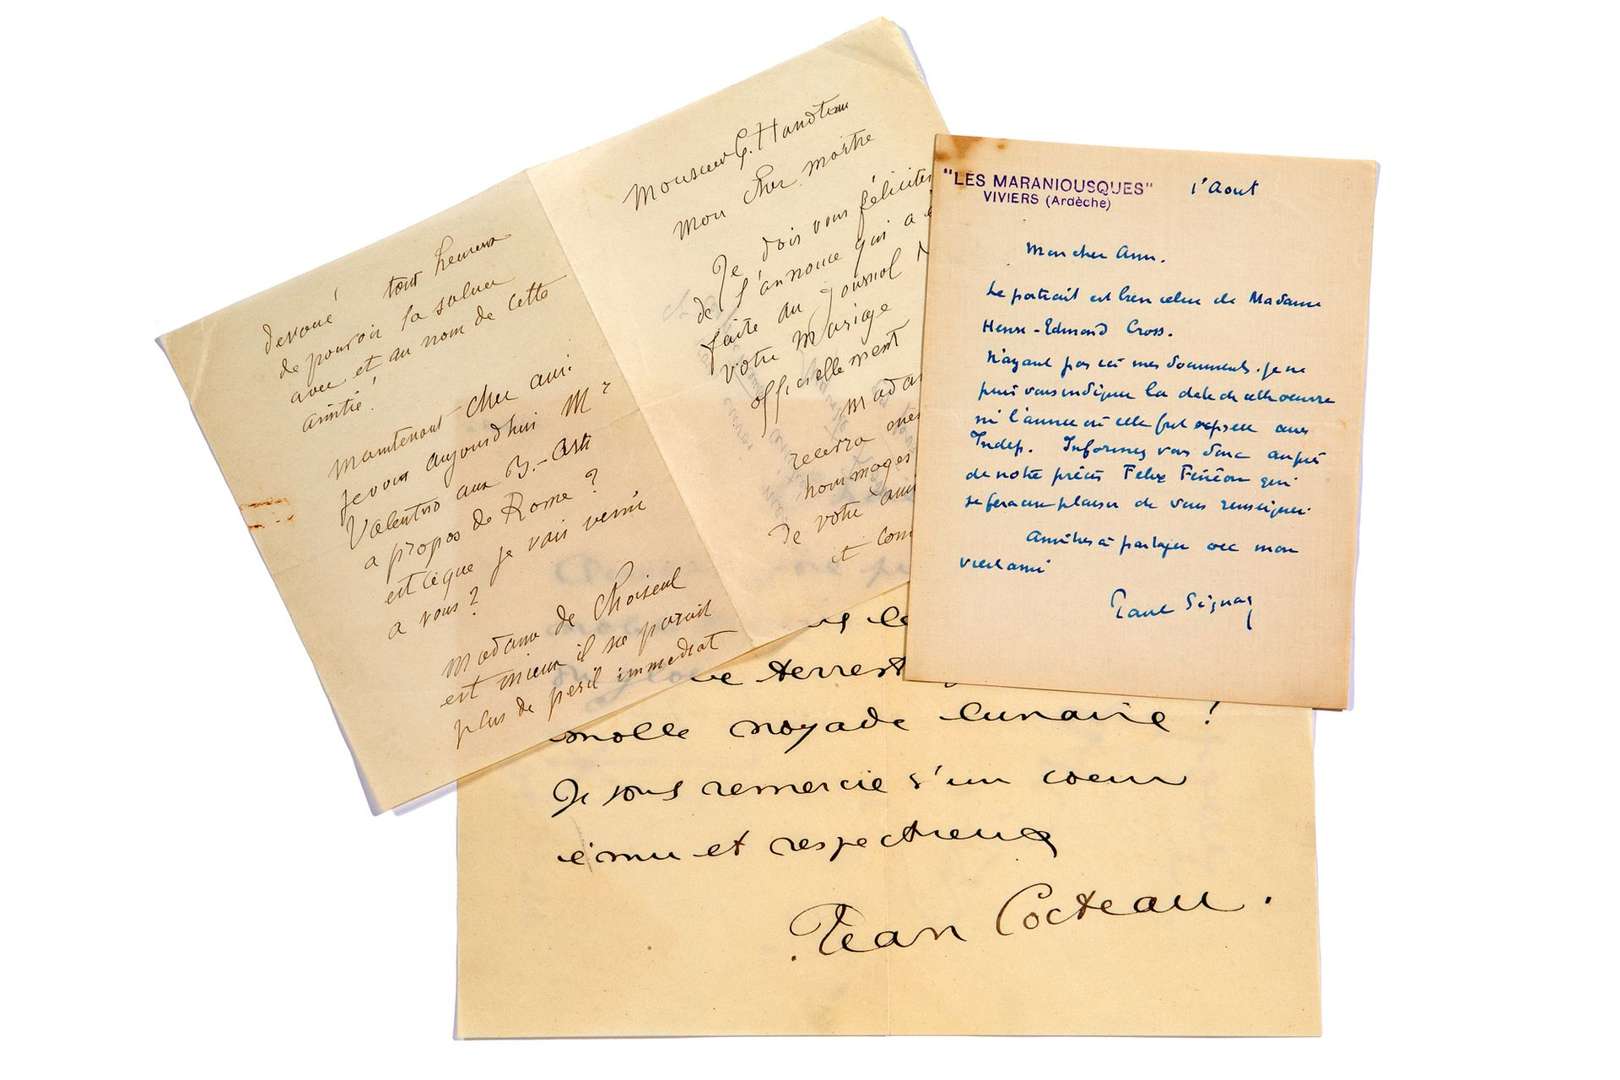 dévoué tout heureux
de pouvoir la saluer
avec et au nom de cette
amitié!
Maintenant cher ami.
je vois aujourdhui Mr
Valentino aux B.-Arts
a propos de Rome?
est ce que je vais venir
a vous?
Madame de Choiseul
est mieux il ne parait
plus de peril immediat
Monsieur G. Hanoteau
Mon cher maitre
Je dois vous féliciter
de l'annonce qui a
faite au Journal
votre Mariage
officiellement
Mada
recevra mes
hommages
De votre ami
et com
"LES MARANIOUSQUES"
VIVIERS (Ardèche)
1' Aout
Mon cher Ami.
Le portrait est bien celui de Madame
Henri-Edmond Cross.
N'ayant pas ici mes documents, je ne
puis vous indiquer la date de cette oeuvre
ni l'année où elle fut exposée aux
Indep. Informez vous donc auprès
de notre précis Felix Fénéon qui
se fera un plaisir de vous renseigner.
Amitiés à partager avec mon
vieil ami
Paul Signac
terrest
molle noyade lunaire!
Je vous remercie d'un coeur
ému et respectueux
Jean Cocteau.